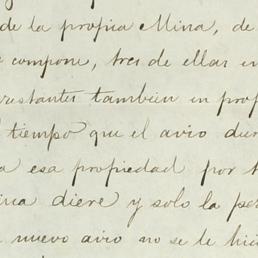 de la propia Mina, de
compone, tres de ellas en
restantes tambien en prop
tiempo que el avio dur
a esa propiedad por t
ina diere y solo la per
nuevo avio no se le hic